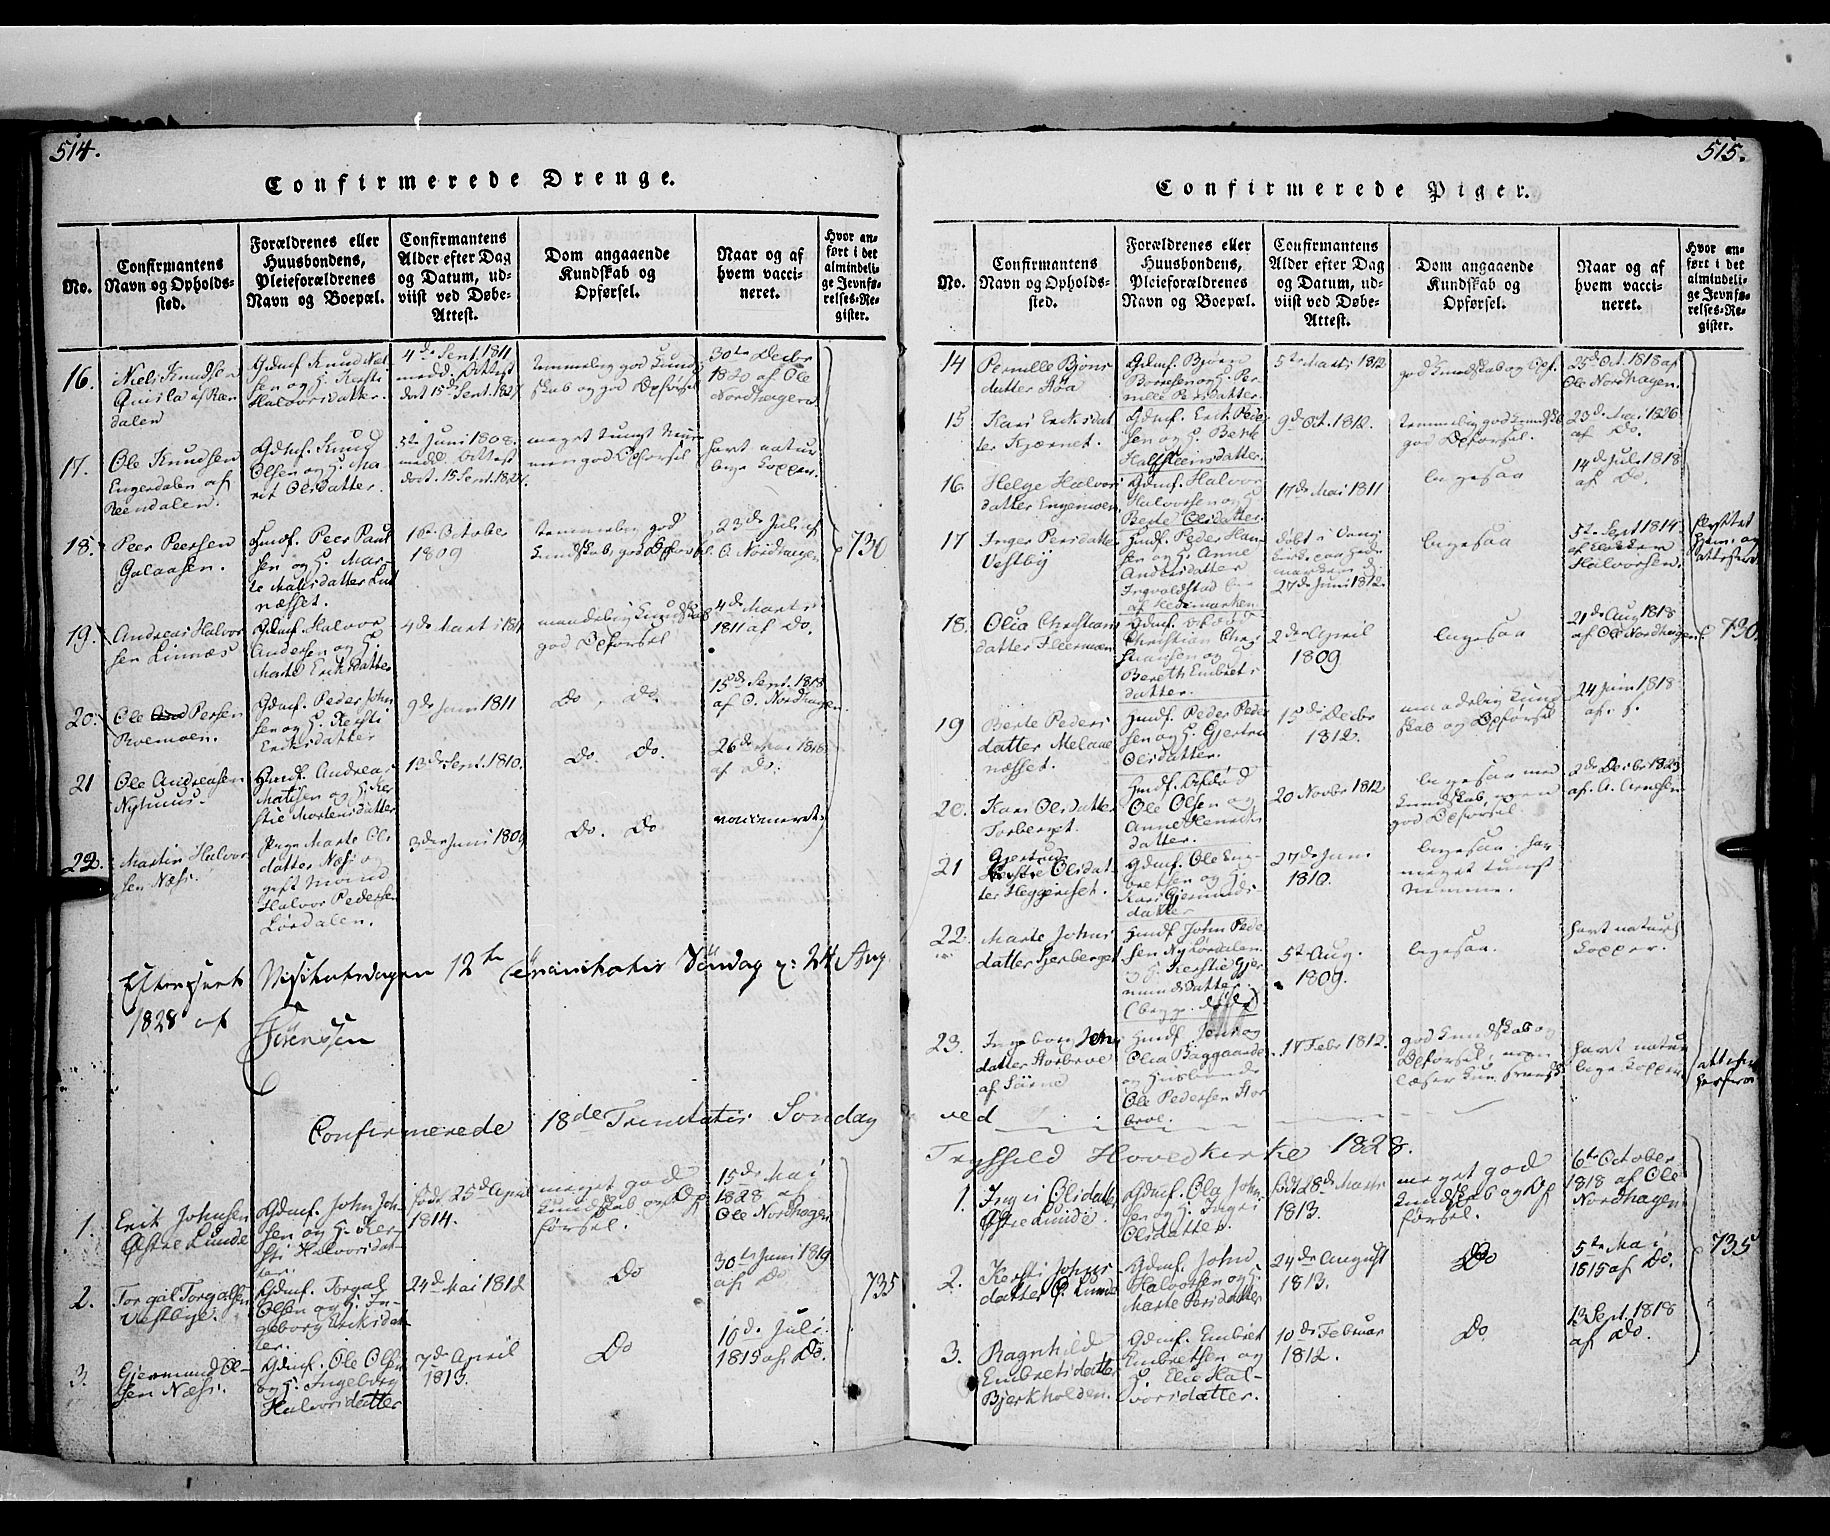 514.
Confirmerede Drenge.
No.
Confirmantens
Navn og Opholds-
sted.
Forældrenes eller
Huusbondens,
Pleieforældrenes
Navn og Boepæl.
Confirmantens
Alder efter Dag
og Datum, ud-
viist ved Døbe-
Attest.
Dom angaaende
Kundskab og
Opførsel.
Naar og af
hvem vacci-
neret.
Hvor an-
ført i det
almindeli-
ge Jevnfø-
relses-Re-
gister.
16.
Niels Knudsen
dalen
Gdmf. Knud Nel-
sen og H. Kersti
Halvorsdatter.
4de Sept. 1811
medd. Attest
dat 15de Sept. 1827
temmelig god Kund-
skab og god Opførsel
30te Decbr
1820 af Ole
Nordhagen
17.
Ole Knudsen
Engerdalen af
Reendalen.
Gdmf. Knud
Olsen og H. Ma-
rit Olsdatter.
5te Juni 1808.
medd. Attest
dat. 15 Sept. 1827.
meget tungt Nem-
me god Opførsel
havt natur
lige Kopper.
18.
Peer Peersen
Galaasen.
Hmdf. Peer Paul
sen og H. Mar-
te Matisdatter Lut
næsset.
1ste October
1809
temmelig god
Kundskab, god Opførsel.
23de Juli af
O. Nordhagen
730
19.
Andreas Halvor
sen Linnæs
Gdmf. Halvor
Andersen og H.
Marte Eriksdatter
4de Marti 1811
maadelig Kundskab
god Opførsel
4de Marti
1811 af Do.
20.
Ole Persen
Moemoen.
Gdmf. Peder John
sen og H. Kersti
Eriksdatter
9de Juni 1811
Do, Do.
15de Sept. 1818
af O. Nordhagen.
21
Ole Andreasen
Nyhuus.
Hmdf. Andreas
Matisen og H. Ker
stie Mortensdatter
13de Sept. 1810.
Do. Do.
26de Mai 1818
af Do.
22.
Martin Halvor
sen Næss.
Pige Marte Ol
datter Næss og
gift Mand
Halvor Pedersen
Lørdalen.
3die Juni 1809
Do. Do
vaccineret
Visitatsdagen 12te Trinitatis Søndag 24 Aug
1828 af
Sörenssen
Confirmerede 18de Trinitatis Sondag
1.
Erik Johnsen
Østre Lunde
Gdmf. John Joh-
sen og H. Ker-
sti Halvorsdat-
ter.
født 25de April
1814.
meget god
Kundskab og Op
førsel.
15de Mai
1828 af
Ole Nordhagen
2.
Torgal Torgalsen
Vestbye.
Gdmf. Torgal
Olsen og H. In-
geborg Eriksdat-
ter.
24de Mai 1812
Do
30te Juni 1819
af Do.
735
3.
Gjermund Ol-
sen Næss.
Gdmf. Ole Olsen
og H. Ingeborg
Halvorsdatter
7de April
1813.
Do
10de Juli
1815 af Do.
515.
Confirmerede Piger.
No.
Confirmantens
Navn og Opholds-
sted.
Forældrenes eller
Huusbondens,
Pleieforældrenes
Navn og Boepæl.
Confirmantens
Alder efter Dag
og Datum, ud-
viist ved Døbe-
Attest.
Dom angaaende
Kundskab og
Opførsel.
Naar og af
hvem vacci-
neret.
Hvor an-
ført i det
almindeli-
ge Jevnfø-
relses-Re-
gister.
14
Pernille Bjøns
datter Røa
Gdmf. Bjørn
Bjørnsen og H. Per-
nille Persdatter.
5te Marti 1812
god Kundskab og Opf.
25de Oct. 1818 af
Ole Nordhagen.
15
Kari Eriksdat
ter Kjærnet.
Gdmf. Erik Peder
sen og H. Berte
Halfsteensdatter.
9de Oct. 1812.
temmelig god Kundsk.
god Opførsel.
23de Mai 1826
af Do.
16.
Helge Halvors
datter Engemoen
Gdmf. Halvor
Halvorsen og H.
Berte Olsdatter.
17de Mai 1811
ligesaa
14de Juli 1818
af Do.
17
Inger Persdatter
Vestby
Hmdf. Peder Han
sen og H. Anne
Andersdatter
Ingvaldstad
af Hedemarken
døbt i Vang
Kirke paa Hede
marken d.
27de Juni 1812.
ligesaa
5te Sept 1814
Halvorsen.
18.
Olia Christians
datter Flermoen
Gdmf.
Christian Chri
stiansen og H
Bereth Embrets
datter.
2den April
1809
ligesaa
21de Aug 1818
af Ole Nordhagen
730.
19
Berte Peders
datter Melane
næsset.
Hmdf. Peder Peder
sen og H. Gjertru
Olsdatter.
15de Decbr
1812.
maadelig Kund
skab og Opførsel
24 Juni 1818
af. s.
20.
Kari Olsdatter
Torberget.
Hmdf. Afdød
Ole Olsen og
Anne Henriks
datter.
20 Novbr 1812
ligesaa
Kundskab, men
god Opførsel
2de Decbr 1823
af A. Arnesen
21
Gjertrud
Olsdat
ter Heggeriset.
Gdmf. Ole Em-
bretsen og H.
Kari Gjermunds
datter
27de Juni
1810.
ligesaa. har
meget tungt
Nemme.
22.
Marte Johns
datter Ljørberget
Hmdf. John Peder
sen Ny Lørdalen
og H. Kerstie Gjer
mundsdatter.
5te Aug.
1809.
ligesaa.
havt naturl
Kopper.
23.
Ingebor Jons
datter Storbroe
af Särna
Hmdf. Jon og
Olia Baggaarde
og Husbonde
Ole Pedersen Stor
broe.
17 Febr 1812.
god Kundskab og
Opførsel, men
læser kun Svensk
havt natur
lige Kopper
ved
Tryssild Hovedkirke 1828.
1.
Inger Olsdatter
Østre Lunde.
Gdmf. Ola John-
sen og H. Inger
Olsdatter.
født 28de Marts
1813.
meget god
Kundskab og Op
førsel.
6te October
1818 af Ole
Nordhagen
2.
Kersti Johns
datter Ø. Lunde
Gdmf. John
Halvorsen og H.
Marte Persdatter
24de August
1813.
Do
5te Mai
1815 af Do.
735
3.
Ragnhild
Embretsdatter
Bjerkholden.
Gdmf. Embret
Embretsen og
H. Elie Hal-
vorsdatter.
10de Februar
1812.
Do
13 Sept. 1818
af Do.